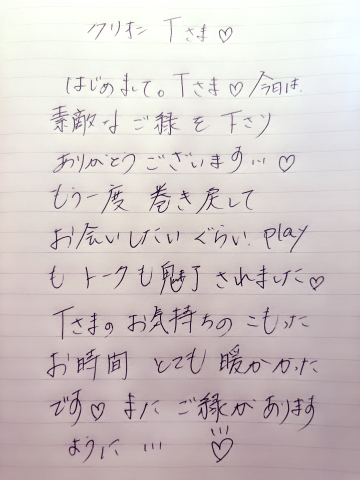 クリオネ Tさま♡
はじめまして。Tさま♡今日は
素敵なご縁を下さり
ありがとうございます…♡
もう一度 巻き戻して
お会いしたいぐらい play
も トークも魅了されました♡
Tさまのお気持ちのこもった
お時間 とても 暖かかった
です♡ また ご縁があります
ように … ♡